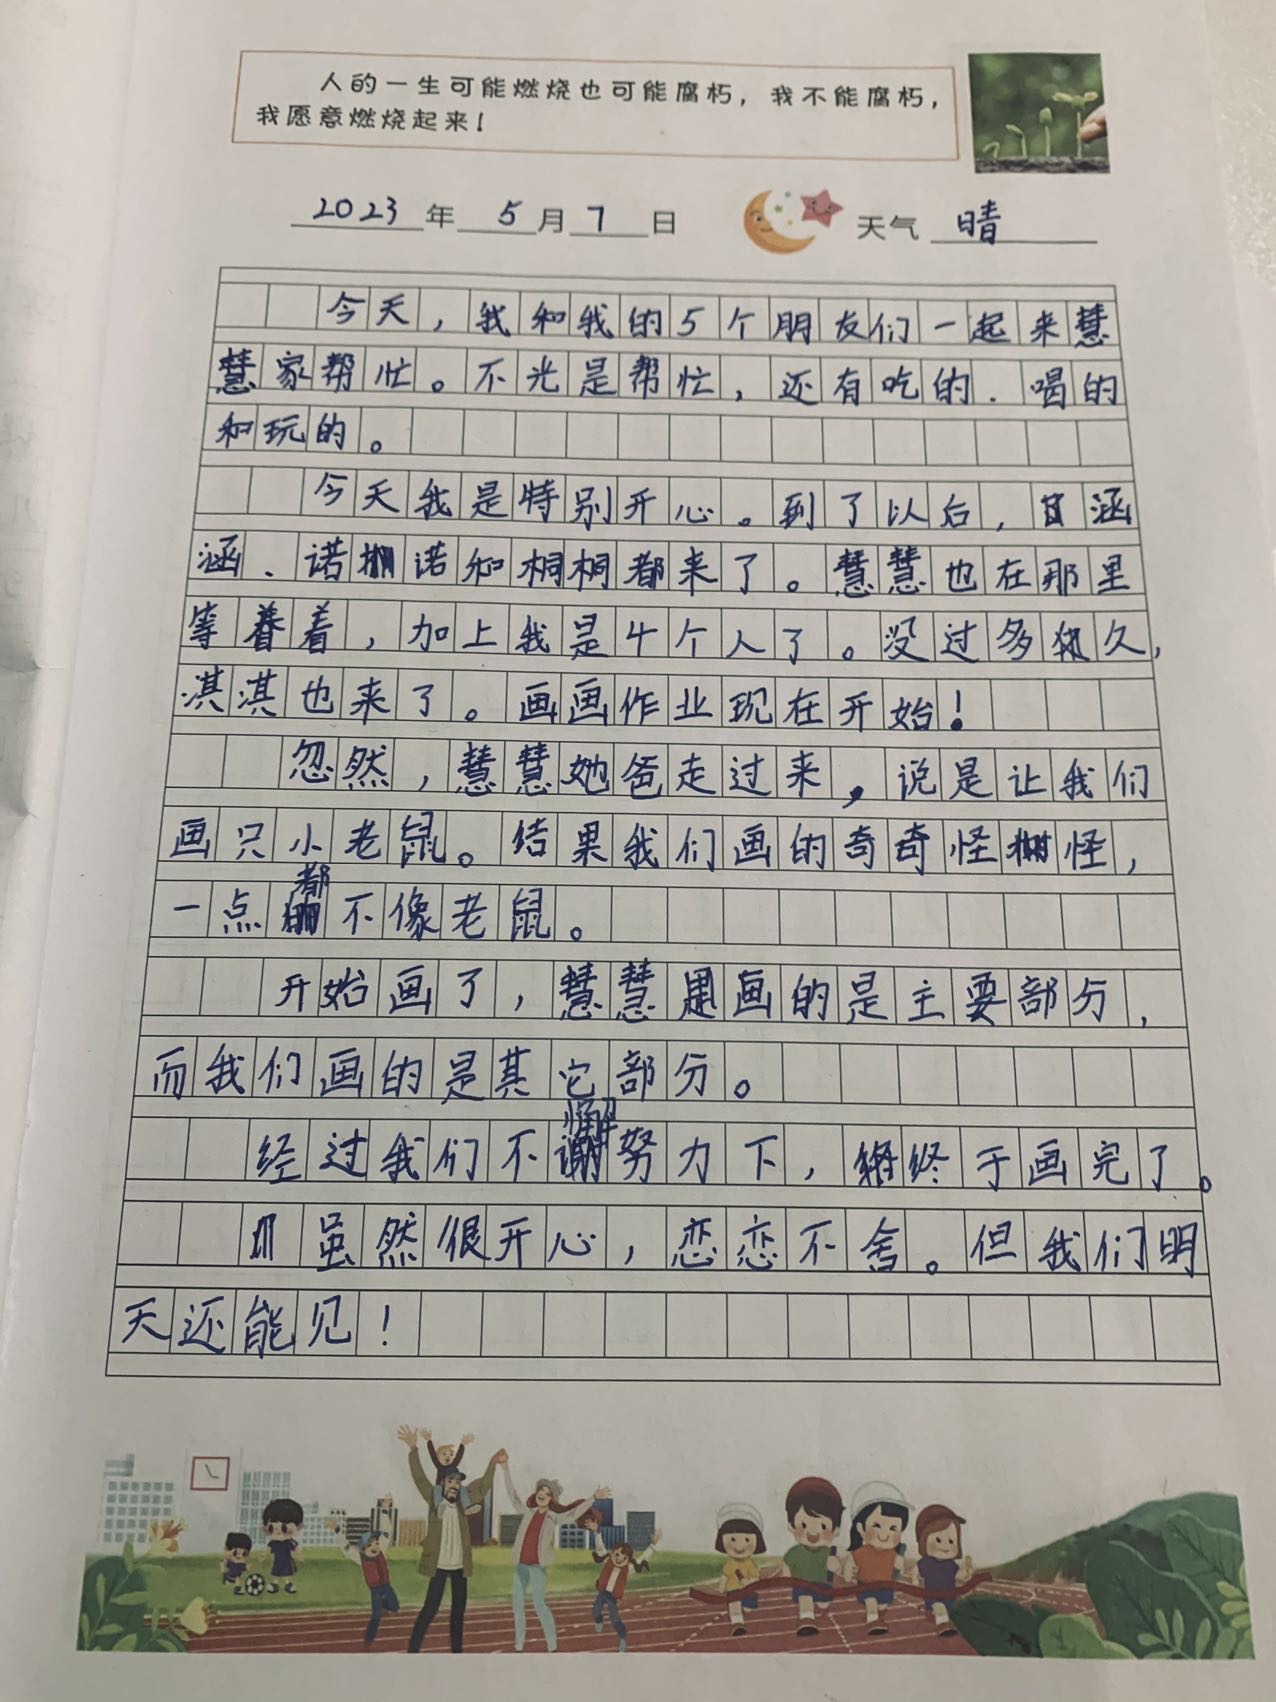 人的一生可能燃烧也可能腐朽，我不能腐朽，
我愿意燃烧起来！
2023年 5月7日 天气 晴
今天，我和我的5个朋友们一起来慧
慧家帮忙。不光是帮忙，还有吃的、喝的
和玩的。
今天我是特别开心。到了以后，涵
涵、诺诺和桐桐都来了。慧慧也在那里
等着，加上我是4个人了。没过多久，
淇淇也来了。画画作业现在开始！
忽然，慧慧她爸走过来，说是让我们
画只小老鼠。结果我们画的奇奇怪怪，
一点都不像老鼠。
开始画了，慧慧画的是主要部分，
而我们画的是其它部分。
经过我们不懈努力下，终于画完了。
虽然很开心，恋恋不舍。但我们明
天还能见！